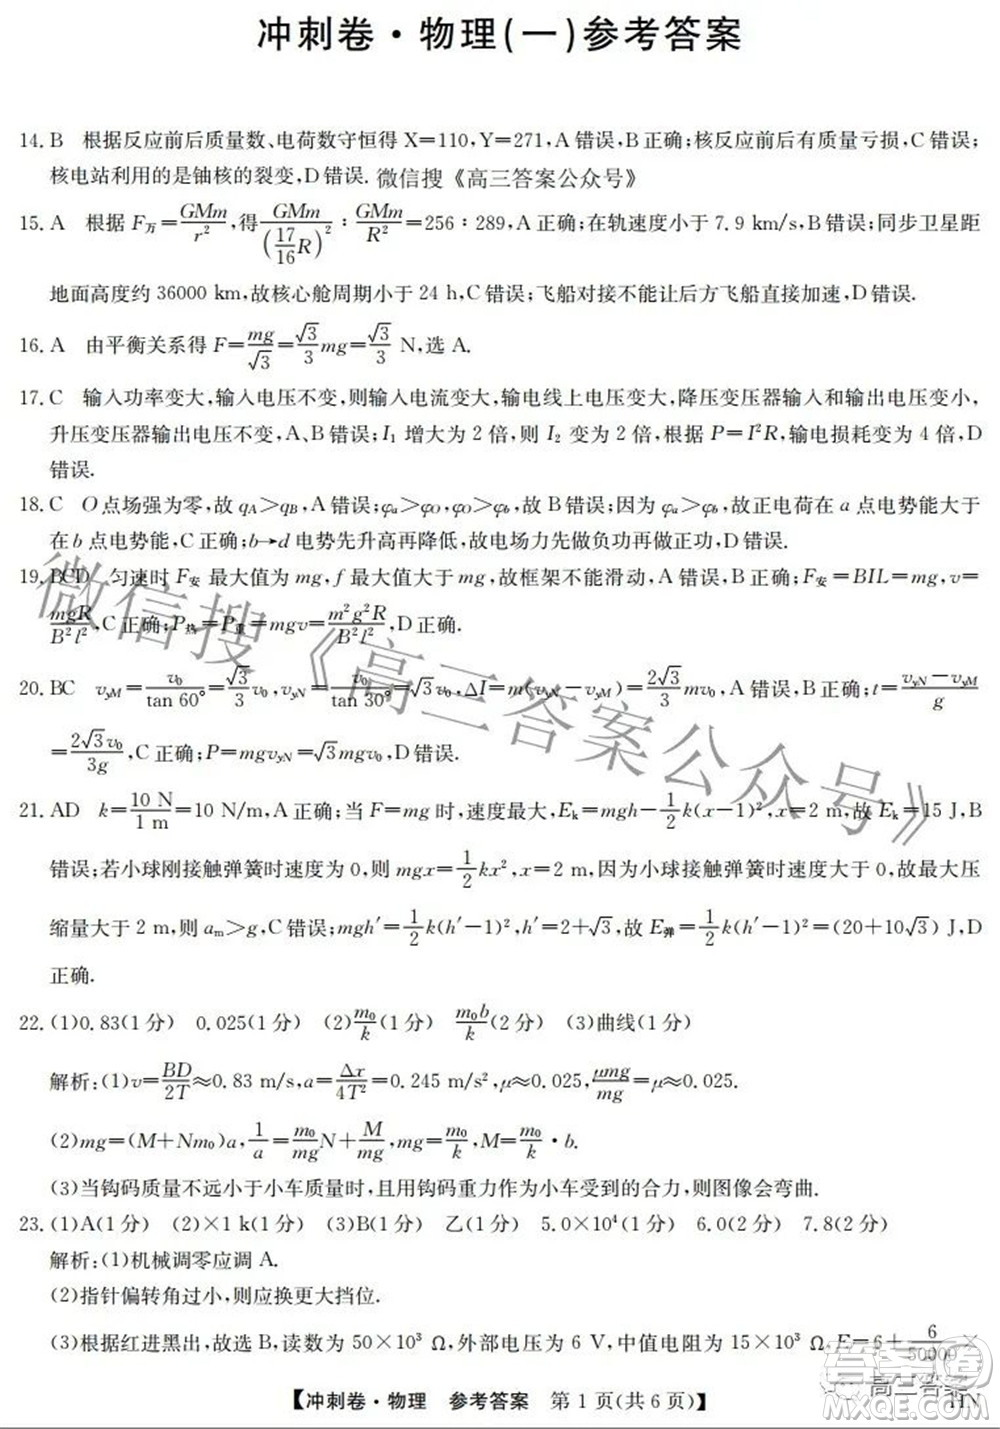 冲刺卷·物理(一)参考答案
14. B 根据反应前后质量数、电荷数守恒得 X=110,Y=271,A 错误,B 正确;核反应前后有质量亏损,C 错误;
核电站利用的是铀核的裂变,D 错误. 微信搜《高三答案公众号》
15. A 根据 F万=GMm/r²,得 GMm/(17/16 R)² : GMm/R²=256 : 289,A 正确;在轨速度小于 7.9 km/s,B 错误;同步卫星距
地面高度约 36000 km,故核心舱周期小于 24 h,C 错误;飞船对接不能让后方飞船直接加速,D 错误.
16. A 由平衡关系得 F=mg/√3=√3/3 mg=√3/3 N,选 A.
17. C 输入功率变大,输入电压不变,则输入电流变大,输电线上电压变大,降压变压器输入和输出电压变小,
升压变压器输出电压不变,A、B 错误;I₁ 增大为 2 倍,则 I₂ 变为 2 倍,根据 P=I²R,输电损耗变为 4 倍,D
错误.
18. C O 点场强为零,故 qA>qB,A 错误;φa>φO,φO>φb,故 B 错误;因为 φa>φb,故正电荷在 a 点电势能大于
在 b 点电势能,C 正确;b→d 电势先升高再降低,故电场力先做负功再做正功,D 错误.
19. BCD 匀速时 F安 最大值为 mg,f 最大值大于 mg,故框架不能滑动,A 错误,B 正确;F安=BIL=mg,v=
mgR/B²l²,C 正确;P热=P重=mgv=m²g²R/B²l²,D 正确.
20. BC vyM=v₀/tan 60°=√3/3 v₀,vyN=v₀/tan 30°=√3 v₀,ΔI=m(vyN−vyM)=2√3/3 mv₀,A 错误,B 正确;t=(vyN−vyM)/g
=2√3v₀/3g,C 正确;P=mgvyN=√3mgv₀,D 错误.
21. AD k=10 N/1 m=10 N/m,A 正确;当 F=mg 时,速度最大,Ek=mgh−1/2 k(x−1)²,x=2 m,故 Ek=15 J,B
错误;若小球刚接触弹簧时速度为 0,则 mgx=1/2 kx²,x=2 m,因为小球接触弹簧时速度大于 0,故最大压
缩量大于 2 m,则 am>g,C 错误;mgh′=1/2 k(h′−1)²,h′=2+√3,故 E弹=1/2 k(h′−1)²=(20+10√3) J,D
正确.
22. (1)0.83(1 分) 0.025(1 分) (2)m₀/k(1 分) m₀b/k(2 分) (3)曲线(1 分)
解析:(1)v=BD/2T≈0.83 m/s,a=Δx/4T²=0.245 m/s²,μ≈0.025,μmg/mg=μ=0.025.
(2)mg=(M+Nm₀)a,1/a=m₀/mg N+M/mg,mg=m₀/k,M=m₀/k·b.
(3)当钩码质量不远小于小车质量时,且用钩码重力作为小车受到的合力,则图像会弯曲.
23. (1)A(1 分) (2)×1 k(1 分) (3)B(1 分) 乙(1 分) 5.0×10⁴(1 分) 6.0(2 分) 7.8(2 分)
解析:(1)机械调零应调 A.
(2)指针偏转角过小,则应换更大挡位.
(3)根据红进黑出,故选 B,读数为 50×10³ Ω,外部电压为 6 V,中值电阻为 15×10³ Ω,E=6+6/50000×
【冲刺卷·物理 参考答案 第 1 页(共 6 页)】 HN
微信搜《高三答案公众号》
高三答案